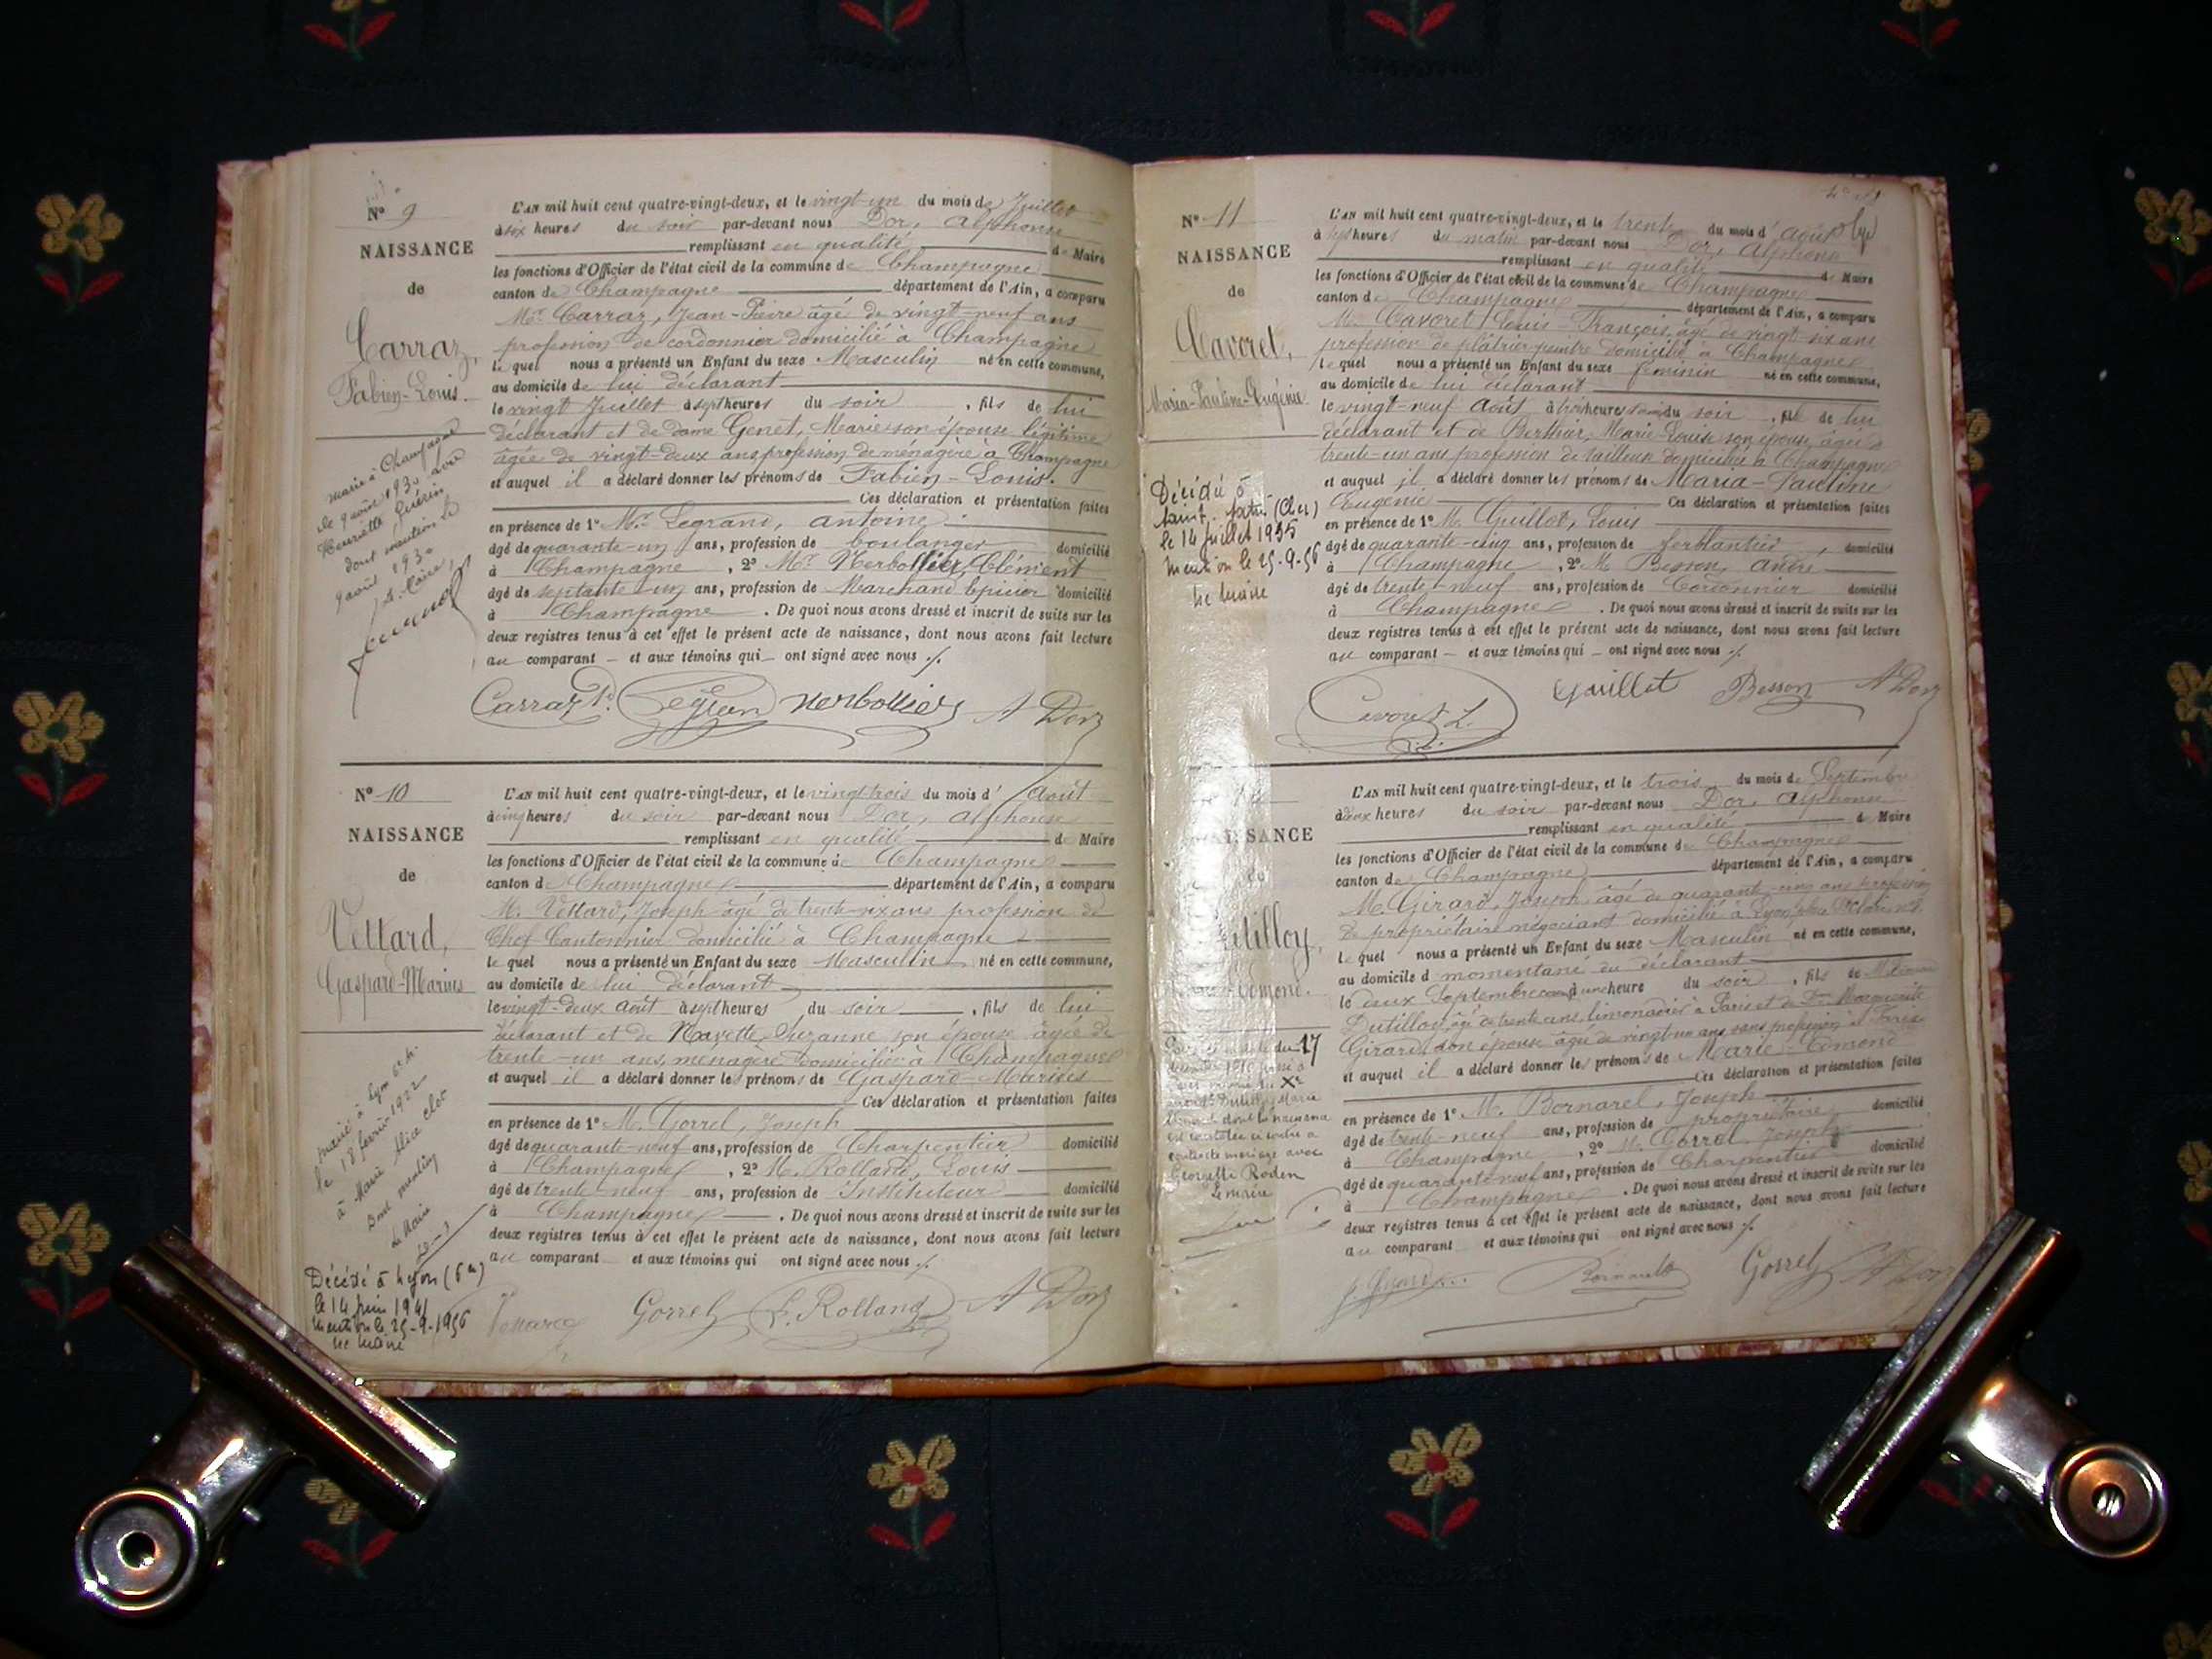 N° 9
NAISSANCE
de
Carraz,
Fabien-Louis.
marié à Champagne
le 9 août 1930 avec
Henriette Guérin
dont mention le
9 août 1930
Le Maire,
L'AN mil huit cent quatre-vingt-deux, et le vingt-un du mois de Juillet
à six heures du soir par-devant nous Dor, Alphonse
remplissant en qualité de Maire
les fonctions d'Officier de l'état civil de la commune de Champagne
canton de Champagne département de l'Ain, a comparu
Mr Carraz, Jean-Pierre âgé de vingt-neuf ans
profession de cordonnier domicilié à Champagne
le quel nous a présenté un Enfant du sexe Masculin né en cette commune,
au domicile de lui déclarant
le vingt Juillet à sept heures du soir, fils de lui
déclarant et de dame Genet, Marie son épouse légitime
âgée de vingt-deux ans profession de ménagère à Champagne
et auquel il a déclaré donner les prénoms de Fabien-Louis.
Ces déclaration et présentation faites
en présence de 1° Mr Legrand, Antoine
âgé de quarante-un ans, profession de boulanger domicilié
à Champagne, 2° Mr Herbollier, Clément
âgé de septante-un ans, profession de Marchand Epicier domicilié
à Champagne. De quoi nous avons dressé et inscrit de suite sur les
deux registres tenus à cet effet le présent acte de naissance, dont nous avons fait lecture
au comparant — et aux témoins qui — ont signé avec nous ./.
Carraz P. herbollier A Dor
N° 10
NAISSANCE
de
Vettard,
Gaspard-Marius
marié à Lyon 6e
le 18 février 1922
à Marie Alice
Dont mention
Le Maire
Décédé à Lyon (6e)
le 14 juin 1941
Mention le 25-9-1956
Le Maire
L'AN mil huit cent quatre-vingt-deux, et le vingt trois du mois d'Août
à cinq heures du soir par-devant nous Dor, Alphonse
remplissant en qualité de Maire
les fonctions d'Officier de l'état civil de la commune de Champagne
canton de Champagne département de l'Ain, a comparu
M. Vettard, Joseph âgé de trente-six ans profession de
Chef-Cantonnier domicilié à Champagne
le quel nous a présenté un Enfant du sexe Masculin né en cette commune,
au domicile de lui déclarant
le vingt-deux août à sept heures du soir, fils de lui
déclarant et de Navette, Suzanne son épouse âgée de
trente-un ans, ménagère domiciliée à Champagne
et auquel il a déclaré donner les prénoms de Gaspard-Marius
Ces déclaration et présentation faites
en présence de 1° M. Gorrel, Joseph
âgé de quarante-neuf ans, profession de Charpentier domicilié
à Champagne, 2° M. Rolland, Louis
âgé de trente-neuf ans, profession de Instituteur domicilié
à Champagne. De quoi nous avons dressé et inscrit de suite sur les
deux registres tenus à cet effet le présent acte de naissance, dont nous avons fait lecture
au comparant et aux témoins qui ont signé avec nous ./.
Vettard Gorrel L. Rolland A Dor
N° 11
NAISSANCE
de
Cavoret,
Maria-Pauline-Eugénie
Décédée à
Saint Satur (Cher)
le 14 juillet 1955
mention le 25-9-56
Le Maire
L'AN mil huit cent quatre-vingt-deux, et le trente du mois d'août
à sept heures du matin par-devant nous Dor, Alphonse
remplissant en qualité de Maire
les fonctions d'Officier de l'état civil de la commune de Champagne
canton de Champagne département de l'Ain, a comparu
M. Cavoret, Louis-François, âgé de vingt-six ans
profession de plâtrier peintre domicilié à Champagne
le quel nous a présenté un Enfant du sexe féminin né en cette commune,
au domicile de lui déclarant
le vingt-neuf Août à trois heures du soir, fille de lui
déclarant et de Berthier, Marie-Louise son épouse âgée de
trente-un ans profession de tailleuse domiciliée à Champagne
et auquel il a déclaré donner les prénoms de Maria-Pauline
Eugénie Ces déclaration et présentation faites
en présence de 1° M. Guillot, Louis
âgé de quarante-cinq ans, profession de ferblantier, domicilié
à Champagne, 2° M. Besson, André
âgé de trente-neuf ans, profession de Cordonnier domicilié
à Champagne. De quoi nous avons dressé et inscrit de suite sur les
deux registres tenus à cet effet le présent acte de naissance, dont nous avons fait lecture
au comparant — et aux témoins qui — ont signé avec nous ./.
Cavoret L. Guillot Besson A Dor
NAISSANCE
de
Dutilloy,
Edmond.
17
Xe
Dutilloy Marie
dont la naissance
est constatée ci contre a
contracté mariage avec
Georgette Roden
Le maire
L'AN mil huit cent quatre-vingt-deux, et le trois du mois de Septembre
à deux heures du soir par-devant nous Dor, Alphonse
remplissant en qualité de Maire
les fonctions d'Officier de l'état civil de la commune de Champagne
canton de Champagne département de l'Ain, a comparu
M. Girard, Joseph âgé de quarante-cinq ans profession
de propriétaire négociant domicilié à Lyon
le quel nous a présenté un Enfant du sexe Masculin né en cette commune,
au domicile d momentané du déclarant
le deux Septembre à une heure du soir, fils de M.
Dutilloy, âgé de trente ans, limonadier à Paris et de Marguerite
Girard son épouse âgée de vingt-un ans sans profession à Paris
et auquel il a déclaré donner les prénoms de Marie-Edmond
Ces déclaration et présentation faites
en présence de 1° M. Bornarel, Joseph
âgé de trente-neuf ans, profession de propriétaire domicilié
à Champagne, 2° M. Gorrel Joseph
âgé de quarante-neuf ans, profession de Charpentier domicilié
à Champagne. De quoi nous avons dressé et inscrit de suite sur les
deux registres tenus à cet effet le présent acte de naissance, dont nous avons fait lecture
au comparant et aux témoins qui ont signé avec nous ./.
J. Girard Bornarel Gorrel A Dor